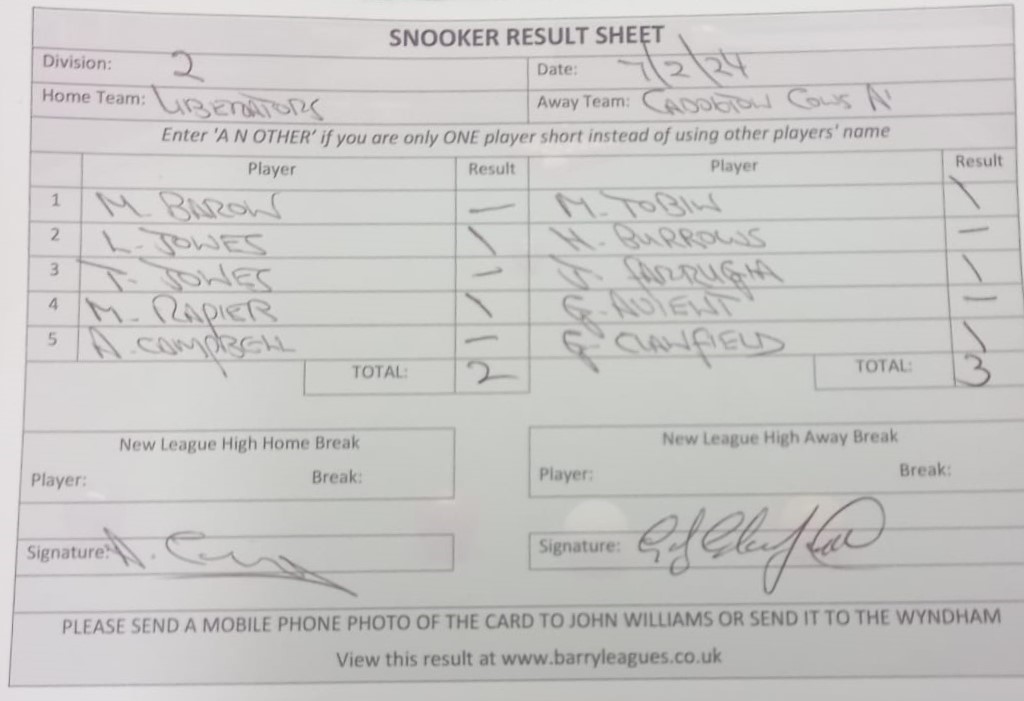 SNOOKER RESULT SHEET
Division: 2 Date: 7/2/24
Home Team: LIBERATORS Away Team: CADOXTON CONS 'A'
Enter 'A N OTHER' if you are only ONE player short instead of using other players' name
Player Result Player Result
1 M. BAROW — M. TOBIN 1
2 L. JONES 1 H. BURROWS —
3 T. JONES — J. FARRUGIA 1
4 M. RAPIER 1 G. AVIENT —
5 A. CAMPBELL — G. CLANFIELD 1
TOTAL: 2 TOTAL: 3
New League High Home Break New League High Away Break
Player: Break: Player: Break:
Signature: Signature:
PLEASE SEND A MOBILE PHONE PHOTO OF THE CARD TO JOHN WILLIAMS OR SEND IT TO THE WYNDHAM
View this result at www.barryleagues.co.uk